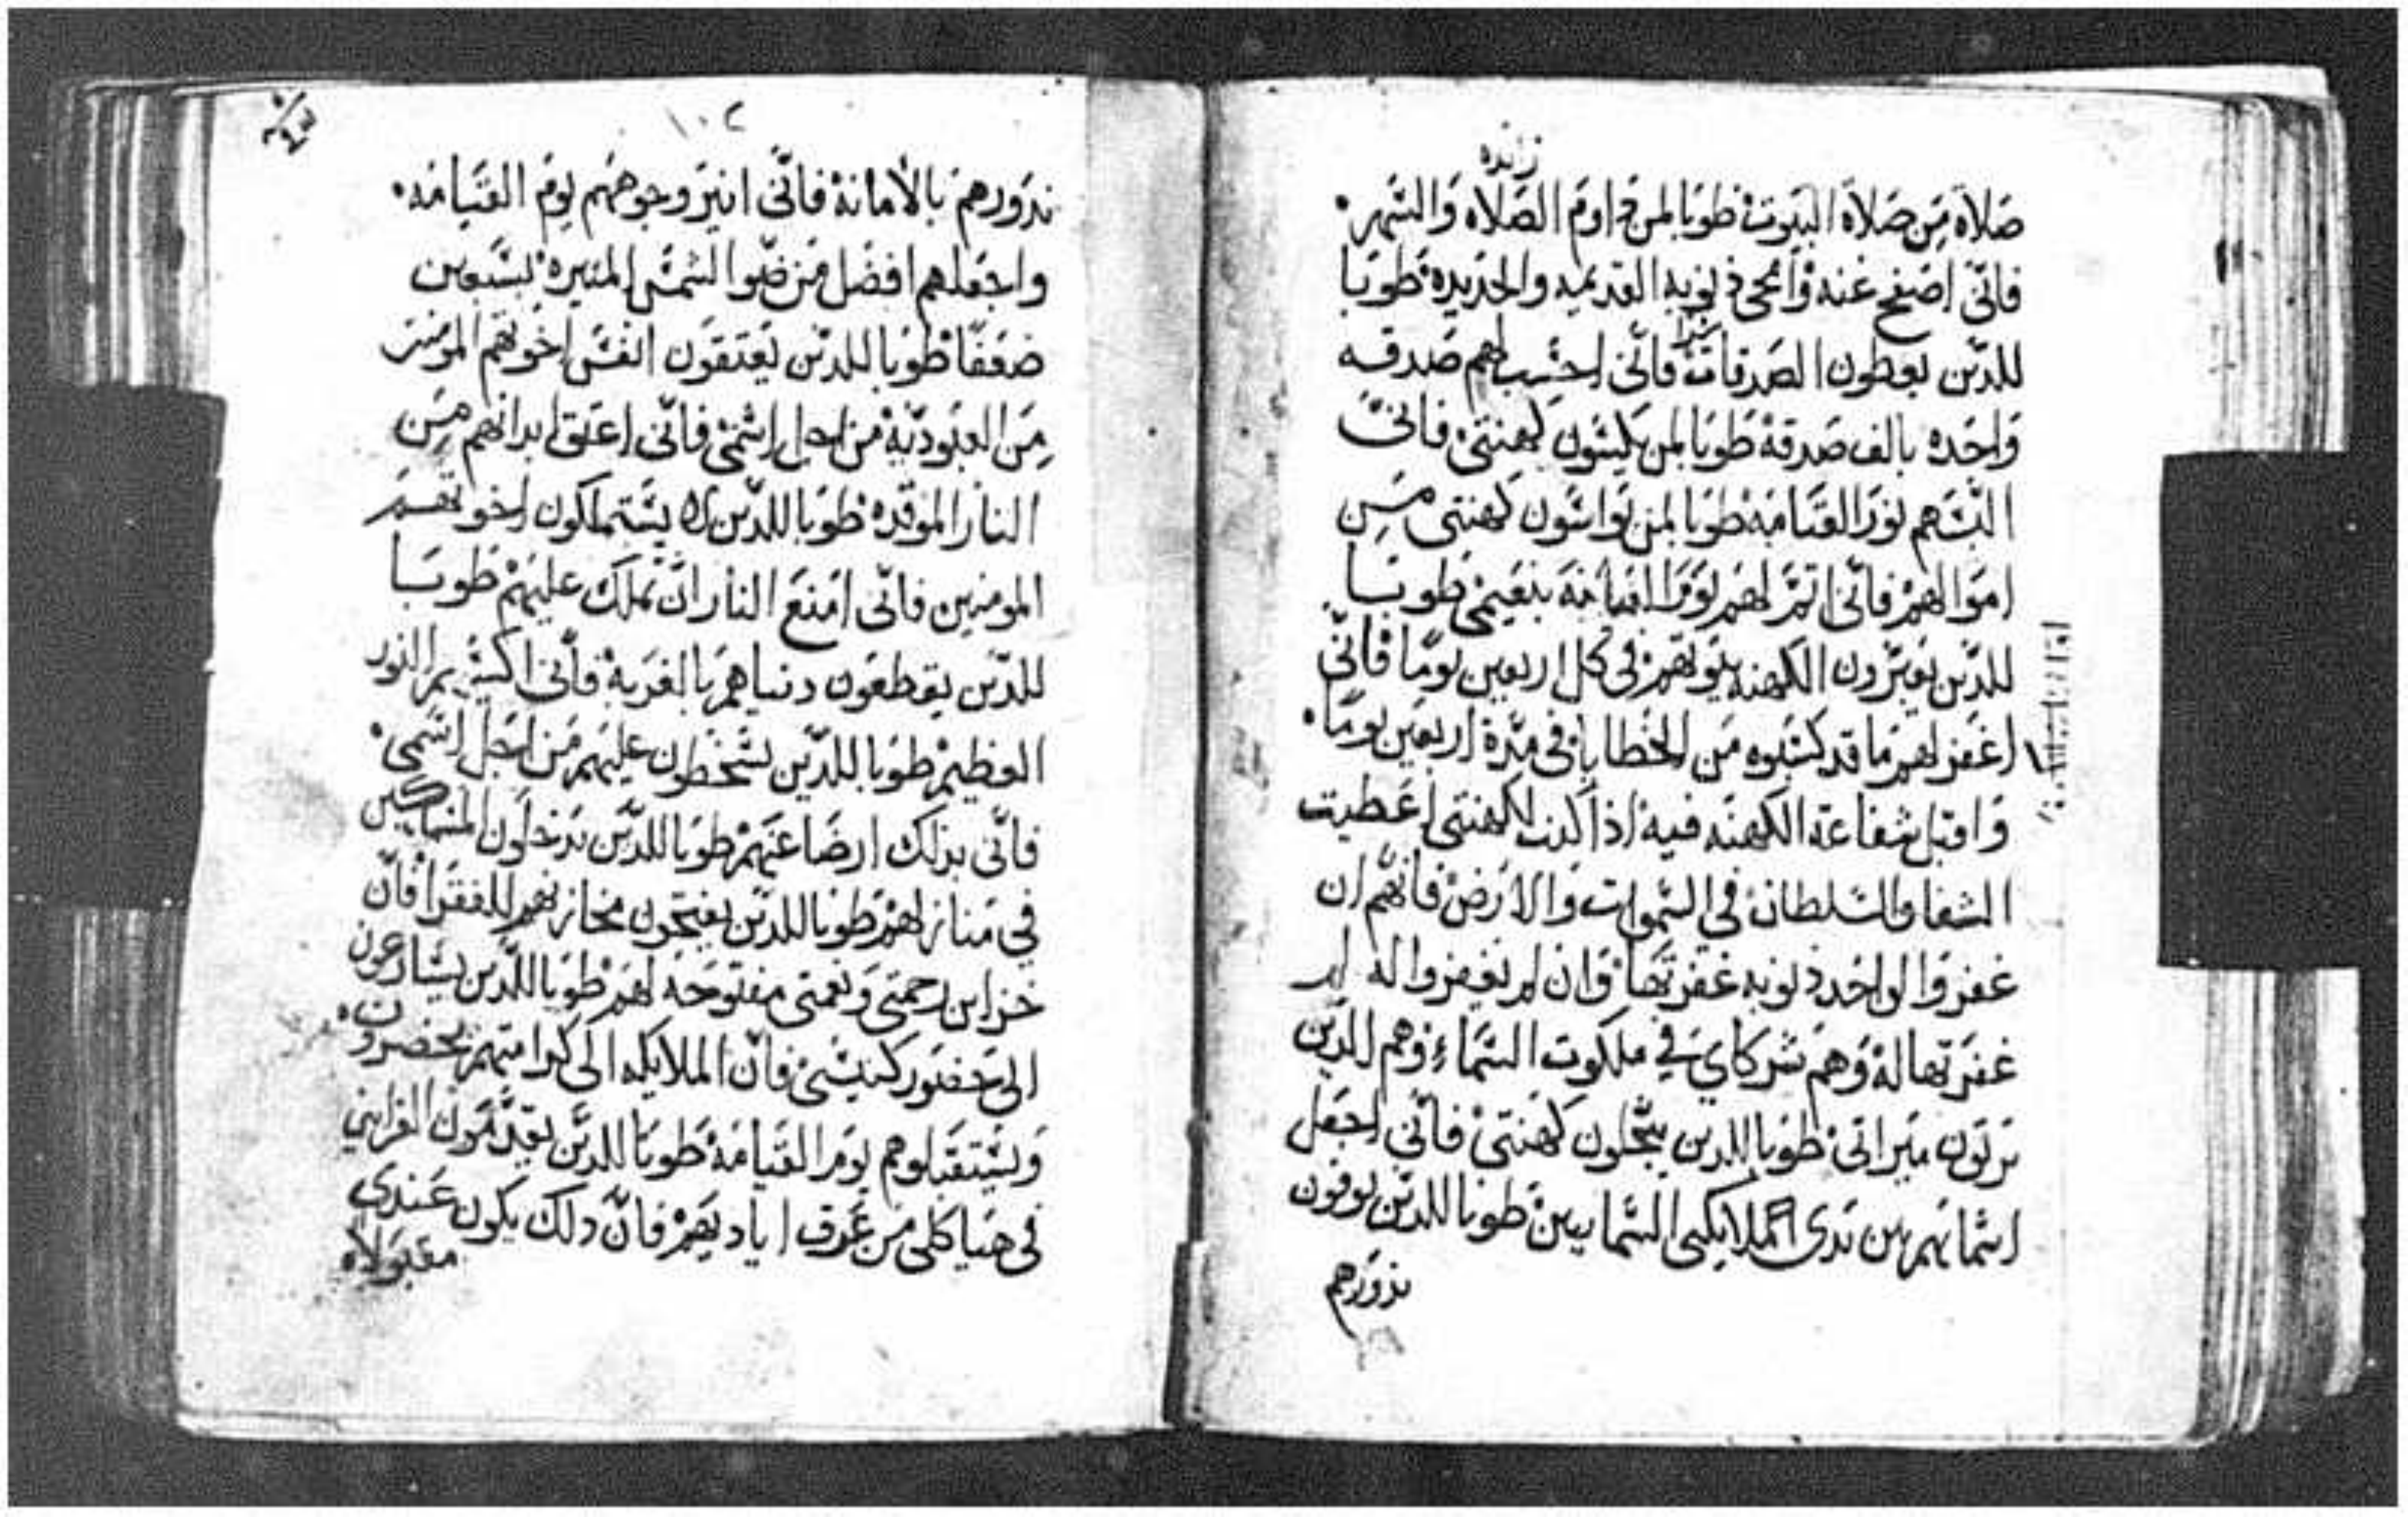 زايده
صلاه من صلاة البيوت طوبا لمن داوم الصلاه والسهر
فاني اصفح عنه وامحي ذنوبه القديمه والجديده طوبا
للدين يعطون الصدقات سرا فاني احسب لهم صدقه
واحده بالف صدقة طوبا لمن يكسون كهنتي فاني
البسهم نور القيامه طوبا لمن يواسون كهنتي من
اموالهم فاني اتمر لهم يوم القيامة بنعيمي طوبا
للدين الكهنه بيوتهم في كل اربعين يوما فاني
اغفر لهم ما قد كسبوه من الخطايا في مدة اربعين يوما
واقبل شفاعة الكهنه فيه اذا كنت لكهنتي اعطيت
الشفا والسلطان في السموات والارض فانهم ان
غفروا لواحد ذنوبه غفرتها وان لم يغفروا له لم
غفرتها له وهم شركاي في ملكوت السماء وهم الدين
يرتون ميراتي طوبا للدين يبجلون كهنتي فاني اجعل
اسماهم بين يدي الملايكي السماييين طوبا للدين يوفون
نذورهم
١٠٢
نذورهم بالامانة فاني انير وجوههم يوم القيامه
واجعلهم افضل من ضوا الشمس المنيره بسبعين
ضعفا طوبا للدين يعتقون انفس اخوتهم
من العبودية من اجل اسمي فاني اعتق ابدانهم من
النار الموقده طوبا للدين لا يستملكون اخوتهم
المومنين فاني امنع النار ان تملك عليهم طوبا
للدين يقطعون دنياهم بالغربة فاني اكسيهم النور
العظيم طوبا للدين يسخطون عليهم من اجل اسمي
فاني بذلك ارضا عنهم طوبا للدين يدخلون المساكين
في منازلهم طوبا للدين يفتحون مخازنهم للفقرا فان
خزاين رحمتي ونعمتي مفتوحه لهم طوبا للدين يسارعون
الى حضور كنيستي فان الملايكه الى كرامتهم يحضرون
ويستقبلوهم يوم القيامة طوبا للدين يقدمون القرابين
في هياكلي من عرق اياديهم فان دلك يكون عندي
مقبولاه